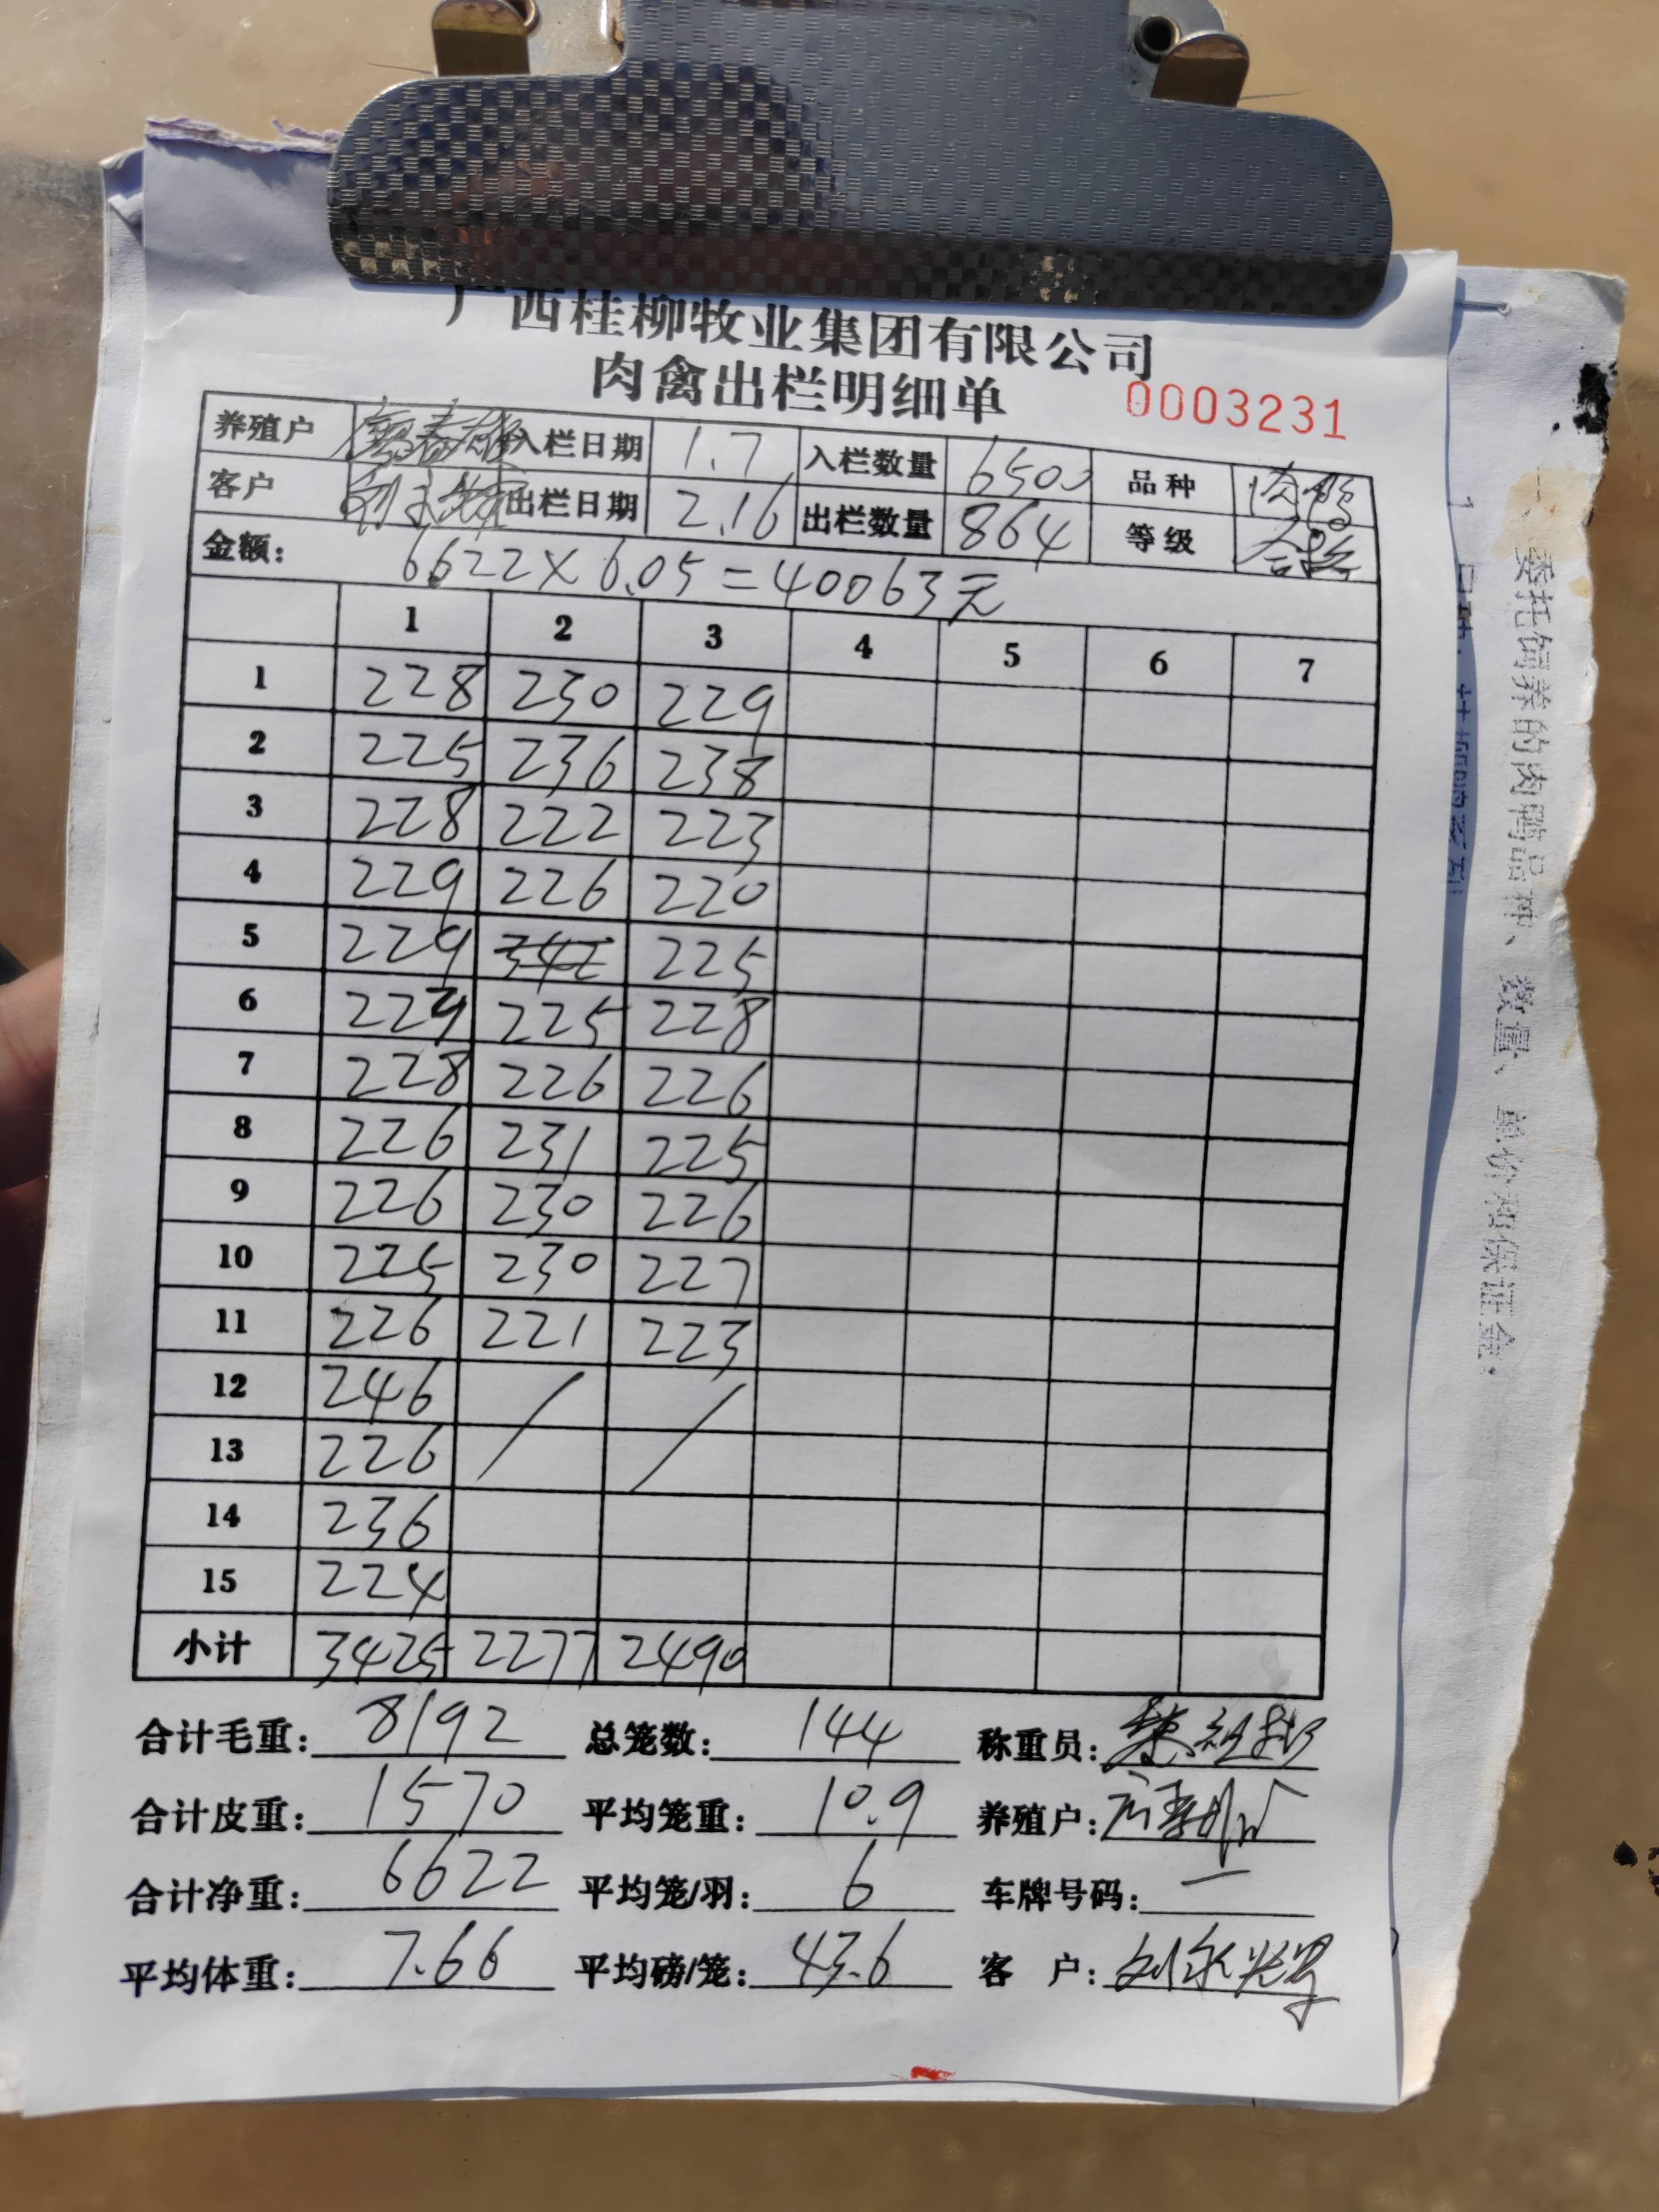 广西桂柳牧业集团有限公司
肉禽出栏明细单 0003231
养殖户 入栏日期 1.7 入栏数量 6500 品种
客户 出栏日期 2.16 出栏数量 864 等级 合格
金额: 6622×6.05=40063元
1 2 3 4 5 6 7
1 228 230 229
2 225 236 238
3 228 222 223
4 229 226 220
5 229 225
6 229 225 228
7 228 226 226
8 226 231 225
9 226 230 226
10 225 230 227
11 226 221 223
12 246 / /
13 226
14 236
15 224
小计 3425 2277 2490
合计毛重: 8192 总笼数: 144 称重员:
合计皮重: 1570 平均笼重: 10.9 养殖户:
合计净重: 6622 平均笼/羽: 6 车牌号码: 一
平均体重: 7.66 平均磅/笼: 43.6 客 户:
一、委托饲养的肉鸭品种、数量、单价和保证金: